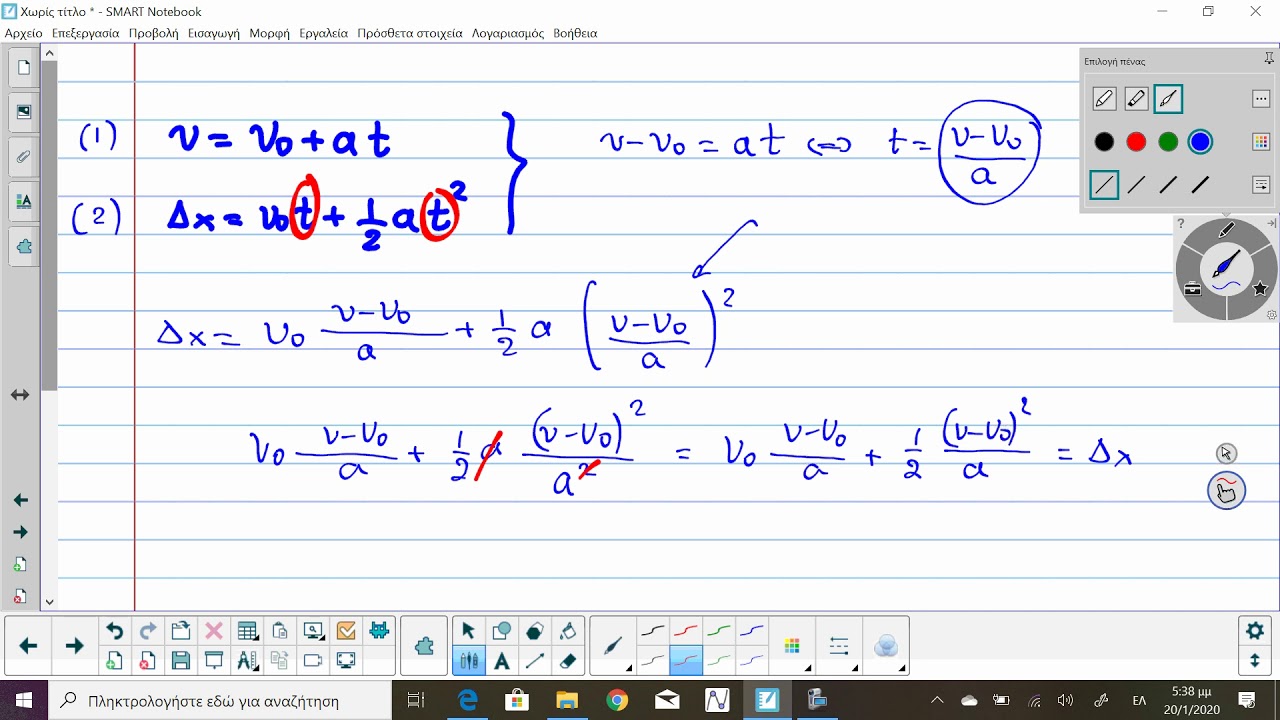 Χωρίς τίτλο * - SMART Notebook
Αρχείο Επεξεργασία Προβολή Εισαγωγή Μορφή Εργαλεία Πρόσθετα στοιχεία Λογαριασμός Βοήθεια
Επιλογή πένας
(1) υ = υ₀ + a t
υ – υ₀ = a t ⇔ t = (υ – υ₀)/a
(2) Δx = υ₀ t + 1/2 a t²
Δx = υ₀ (υ – υ₀)/a + 1/2 a ((υ – υ₀)/a)²
υ₀ (υ – υ₀)/a + 1/2 a (υ – υ₀)²/a² = υ₀ (υ – υ₀)/a + 1/2 (υ – υ₀)²/a = Δx
Πληκτρολογήστε εδώ για αναζήτηση
ΕΛ
5:38 μμ
20/1/2020